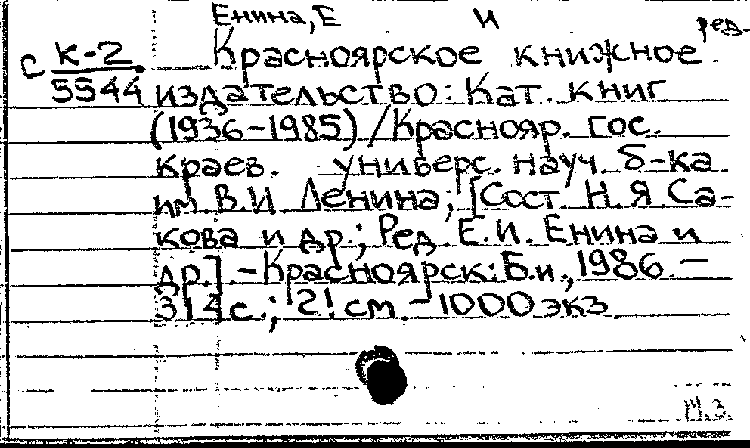 Енина, Е И ред.
с К-2 Красноярское книжное
5544 издательство: Кат. книг
(1936-1985) / Краснояр. гос.
краев. универс. науч. б-ка
им. В.И. Ленина; [Сост. Н. Я Са-
кова и др.; Ред. Е.И. Енина и
др.] - Красноярск: Б.и., 1986. -
314 с.; 21 см. - 1000 экз.